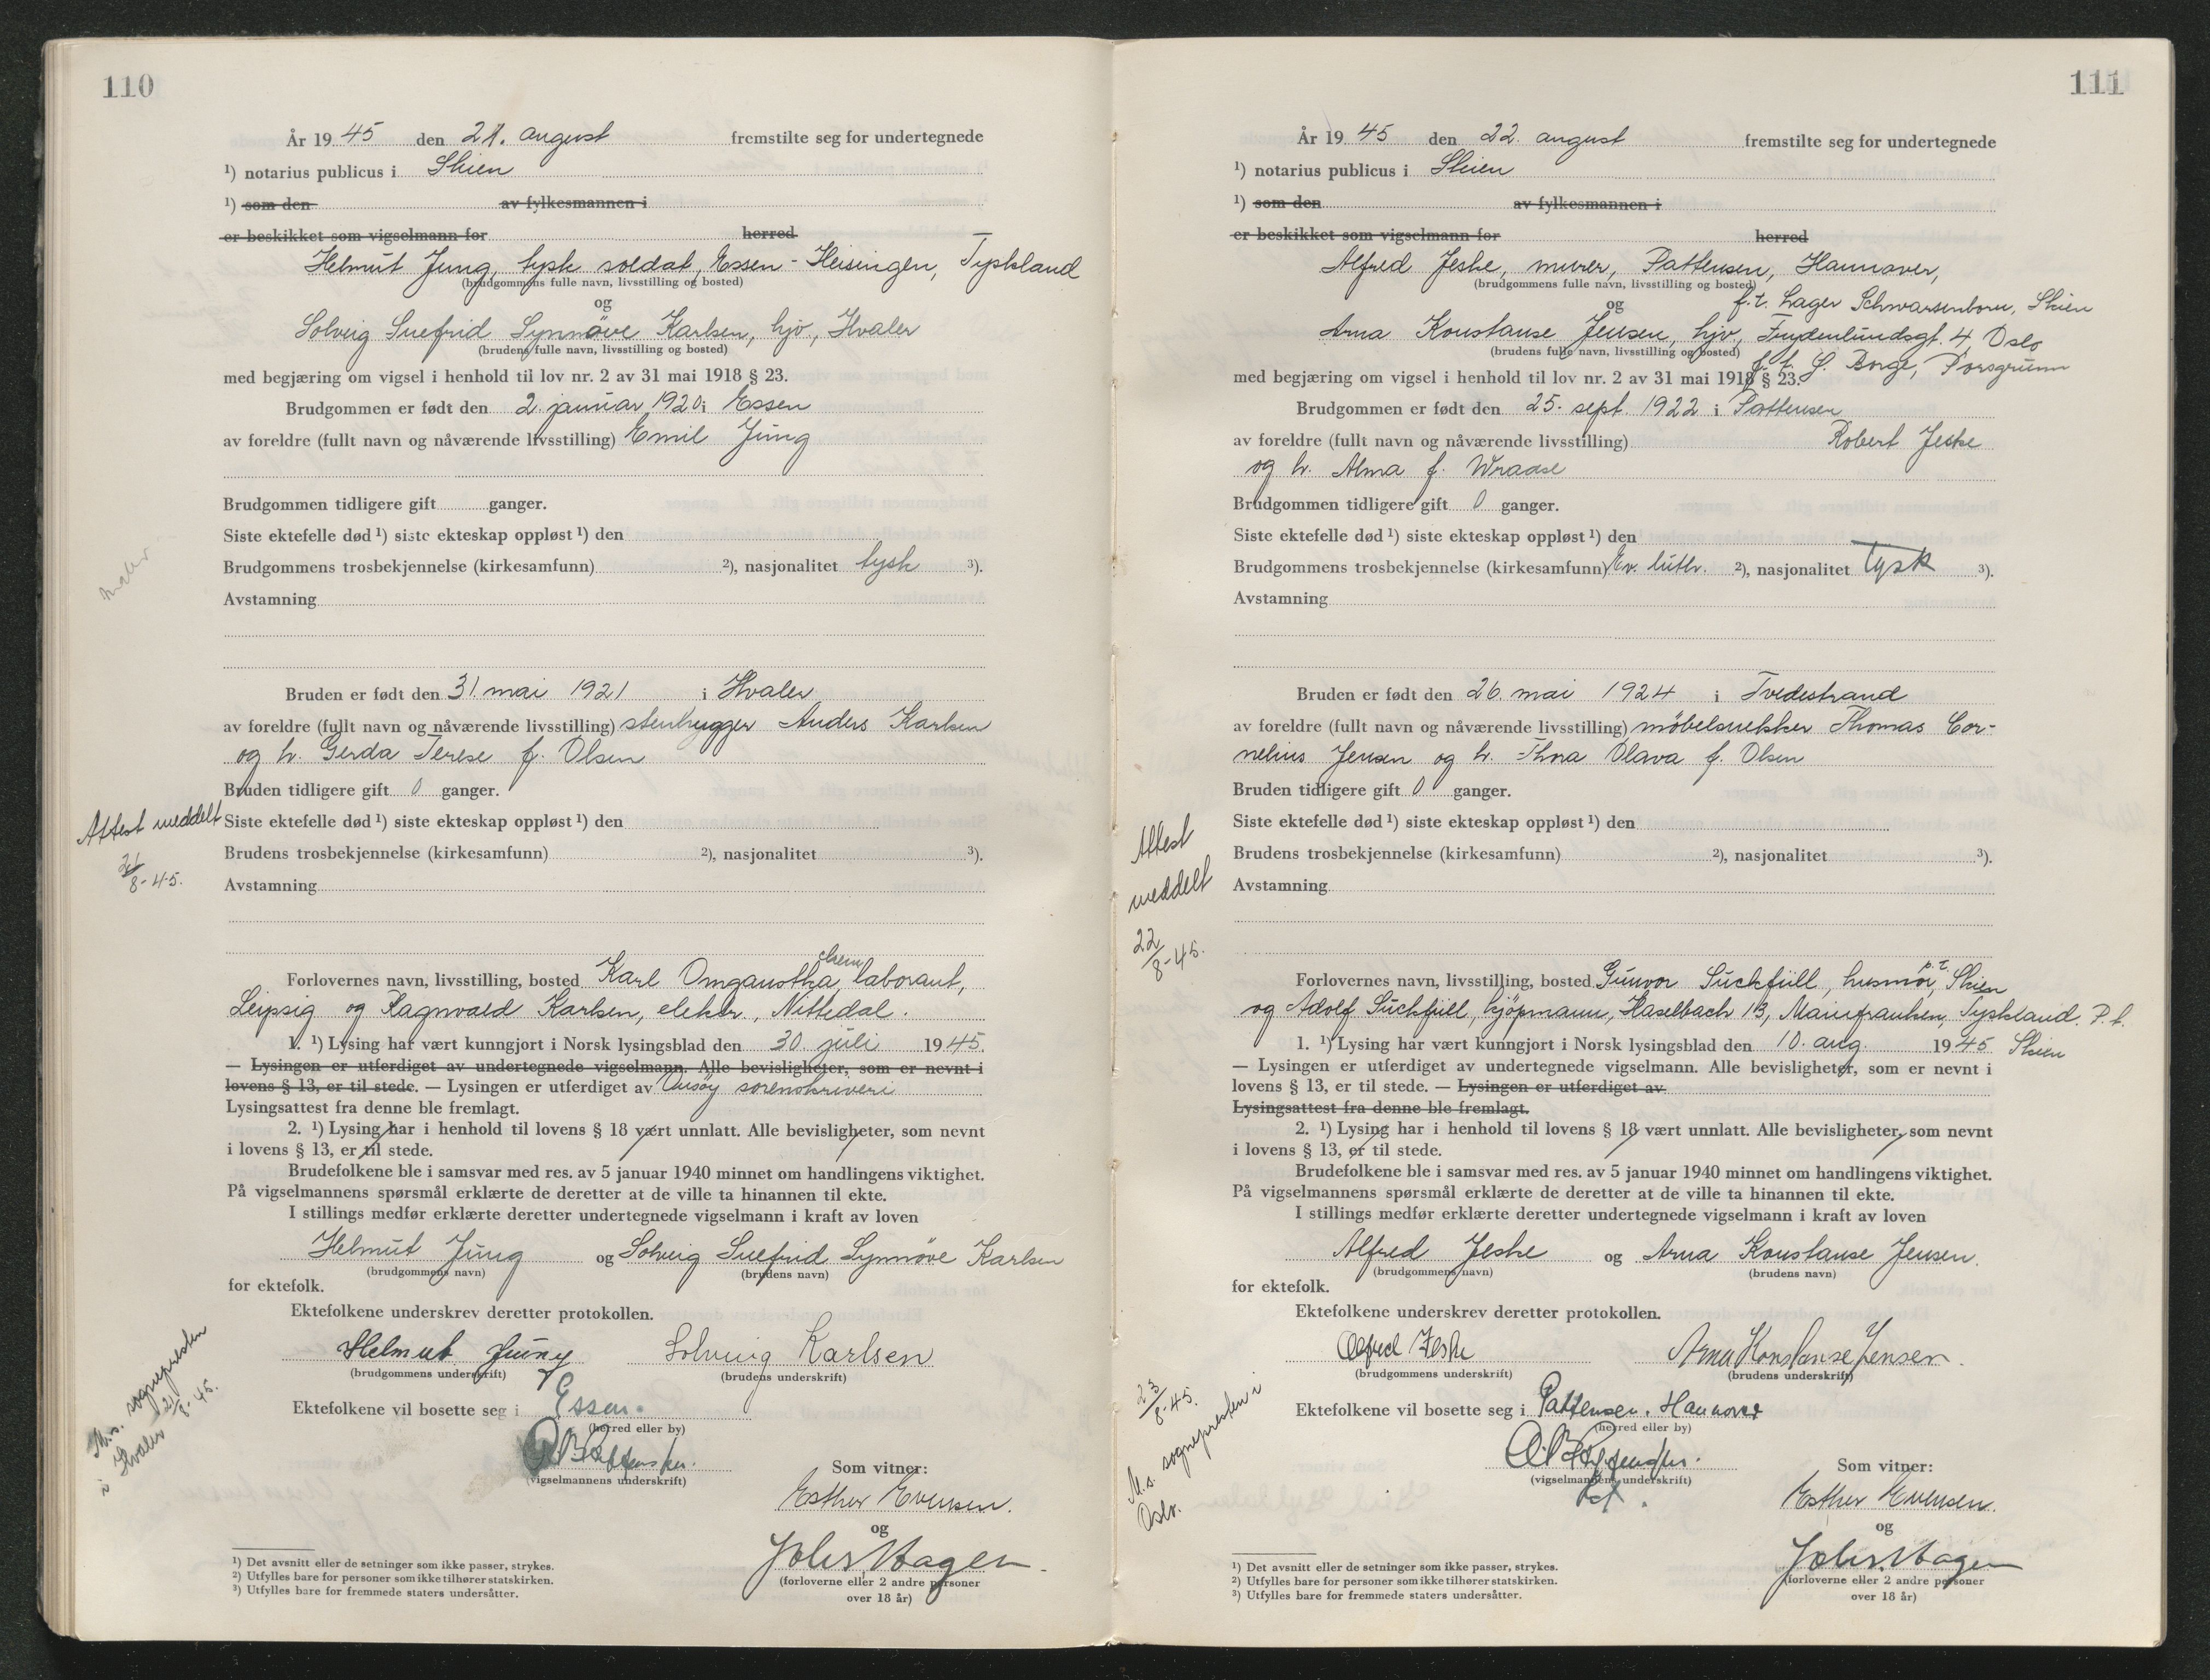 110
År 19 45 den 21. august fremstilte seg for undertegnede
¹) notarius publicus i Skien
¹) som den av fylkesmannen i
er beskikket som vigselmann for herred
Helmut Jung, tysk soldat, Essen - Heisingen, Tyskland
(brudgommens fulle navn, livsstilling og bosted)
og
Solveig Snefrid Synnöve Karlsen, hjv., Hvaler
(brudens fulle navn, livsstilling og bosted)
med begjæring om vigsel i henhold til lov nr. 2 av 31 mai 1918 § 23.
Brudgommen er født den 2. januar 1920 i Essen
av foreldre (fullt navn og nåværende livsstilling) Emil Jung
Brudgommen tidligere gift ganger.
Siste ektefelle død ¹) siste ekteskap oppløst ¹) den
Brudgommens trosbekjennelse (kirkesamfunn) ²), nasjonalitet tysk ³).
Avstamning
Bruden er født den 31. mai 1921 i Hvaler
av foreldre (fullt navn og nåværende livsstilling) stenhugger Anders Karlsen
og h. Gerda Terese f. Olsen
Bruden tidligere gift 0 ganger.
Attest meddelt
21/8-45.
Siste ektefelle død ¹) siste ekteskap oppløst ¹) den
Brudens trosbekjennelse (kirkesamfunn) ²), nasjonalitet ³).
Avstamning
Forlovernes navn, livsstilling, bosted Karl chem. laborant,
Leipsig og Ragnvald Karlsen, elektr., Nittedal.
1. ¹) Lysing har vært kunngjort i Norsk lysingsblad den 30. juli 1945.
— Lysingen er utferdiget av undertegnede vigselmann. Alle bevisligheter, som er nevnt i
lovens § 13, er til stede. — Lysingen er utferdiget av Onsöy sorenskriveri
Lysingsattest fra denne ble fremlagt.
2. ¹) Lysing har i henhold til lovens § 18 vært unnlatt. Alle bevisligheter, som nevnt
i lovens § 13, er til stede.
Brudefolkene ble i samsvar med res. av 5 januar 1940 minnet om handlingens viktighet.
På vigselmannens spørsmål erklærte de deretter at de ville ta hinannen til ekte.
I stillings medfør erklærte deretter undertegnede vigselmann i kraft av loven
Helmut Jung og Solveig Snefrid Synnöve Karlsen
(brudgommens navn) (brudens navn)
for ektefolk.
Ektefolkene underskrev deretter protokollen.
Helmut Jung Solveig Karlsen
(brudgommens underskrift) (brudens underskrift)
M.s. sognepresten
i Hvaler 21/8-45.
Ektefolkene vil bosette seg i Essen.
(herred eller by)
(vigselmannens underskrift)
Som vitner:
Esther Evensen.
og
Johs. Hagen
(forloverne eller 2 andre personer
over 18 år)
¹) Det avsnitt eller de setninger som ikke passer, strykes.
²) Utfylles bare for personer som ikke tilhører statskirken.
³) Utfylles bare for fremmede staters undersåtter.
111
År 19 45 den 22. august fremstilte seg for undertegnede
¹) notarius publicus i Skien
¹) som den av fylkesmannen i
er beskikket som vigselmann for herred
Alfred Jeske, murer, Pattensen, Hannover,
(brudgommens fulle navn, livsstilling og bosted)
f.t. Lager Schwarsenborn, Skien
og
Arna Konstanse Jensen, hjv., Frydenlundsgt. 4, Oslo
(brudens fulle navn, livsstilling og bosted)
f.t. S. Borge, Porsgrunn
med begjæring om vigsel i henhold til lov nr. 2 av 31 mai 1918 § 23.
Brudgommen er født den 25. sept. 1922 i Pattensen
av foreldre (fullt navn og nåværende livsstilling) Robert Jeske
og h. Alma f. Wraase
Brudgommen tidligere gift 0 ganger.
Siste ektefelle død ¹) siste ekteskap oppløst ¹) den
Brudgommens trosbekjennelse (kirkesamfunn) Ev. luth. ²), nasjonalitet Tysk ³).
Avstamning
Bruden er født den 26. mai 1924 i Tvedestrand
av foreldre (fullt navn og nåværende livsstilling) möbelsnekker Thomas Cor-
nelius Jensen og h. Thora Olava f. Olsen
Bruden tidligere gift 0 ganger.
Siste ektefelle død ¹) siste ekteskap oppløst ¹) den
Attest
meddelt
22/8-45.
Brudens trosbekjennelse (kirkesamfunn) ²), nasjonalitet ³).
Avstamning
Forlovernes navn, livsstilling, bosted Gunvor Suckfüll, husmor, p.t. Skien
og Adolf Suckfüll, kjöpmann, Haselbach 13, Mainfranken, Tyskland. P.t.
Skien
1. ¹) Lysing har vært kunngjort i Norsk lysingsblad den 10. aug. 1945
— Lysingen er utferdiget av undertegnede vigselmann. Alle bevisligheter, som er nevnt i
lovens § 13, er til stede. — Lysingen er utferdiget av
Lysingsattest fra denne ble fremlagt.
2. ¹) Lysing har i henhold til lovens § 18 vært unnlatt. Alle bevisligheter, som nevnt
i lovens § 13, er til stede.
Brudefolkene ble i samsvar med res. av 5 januar 1940 minnet om handlingens viktighet.
På vigselmannens spørsmål erklærte de deretter at de ville ta hinannen til ekte.
I stillings medfør erklærte deretter undertegnede vigselmann i kraft av loven
Alfred Jeske og Arna Konstanse Jensen.
(brudgommens navn) (brudens navn)
for ektefolk.
Ektefolkene underskrev deretter protokollen.
Alfred Jeske Arna Konstanse Jensen.
(brudgommens underskrift) (brudens underskrift)
23/8-45.
M.s. sognepresten i
Oslo.
Ektefolkene vil bosette seg i Pattensen. Hannover
(herred eller by)
(vigselmannens underskrift)
Som vitner:
Esther Evensen.
og
Johs. Hagen
(forloverne eller 2 andre personer
over 18 år)
¹) Det avsnitt eller de setninger som ikke passer, strykes.
²) Utfylles bare for personer som ikke tilhører statskirken.
³) Utfylles bare for fremmede staters undersåtter.